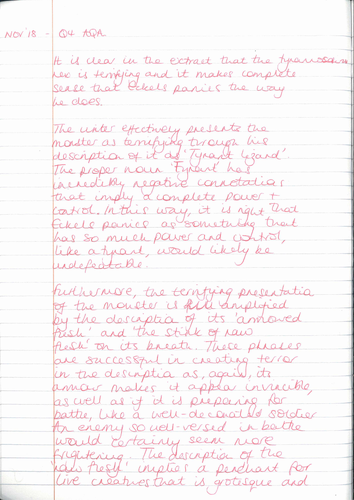 Nov '18 - Q4 AQA
It is clear in the extract that the tyrannosaurus
rex is terrifying and it makes complete
sense that Eckels panics the way
he does.
The writer effectively presents the
monster as terrifying through his
description of it as 'Tyrant Lizard'.
The proper noun 'Tyrant' has
incredibly negative connotations
that imply a complete power +
control. In this way, it is right that
Eckels panics as something that
has so much power and control,
like a tyrant, would likely be
undefeatable.
Furthermore, the terrifying presentatio
of the monster is amplified
by the description of its 'armoured
flesh' and 'the stink of raw
flesh' on its breath. These phrases
are successful in creating terror
in the description as, again, its
armour makes it appear invincible,
as well as if it is preparing for
battle, like a well-decorated soldier.
An enemy so well-versed in battle
would certainly seem more
frightening. The description of the
'raw flesh' implies a penchant for
live creatures that is grotesque and